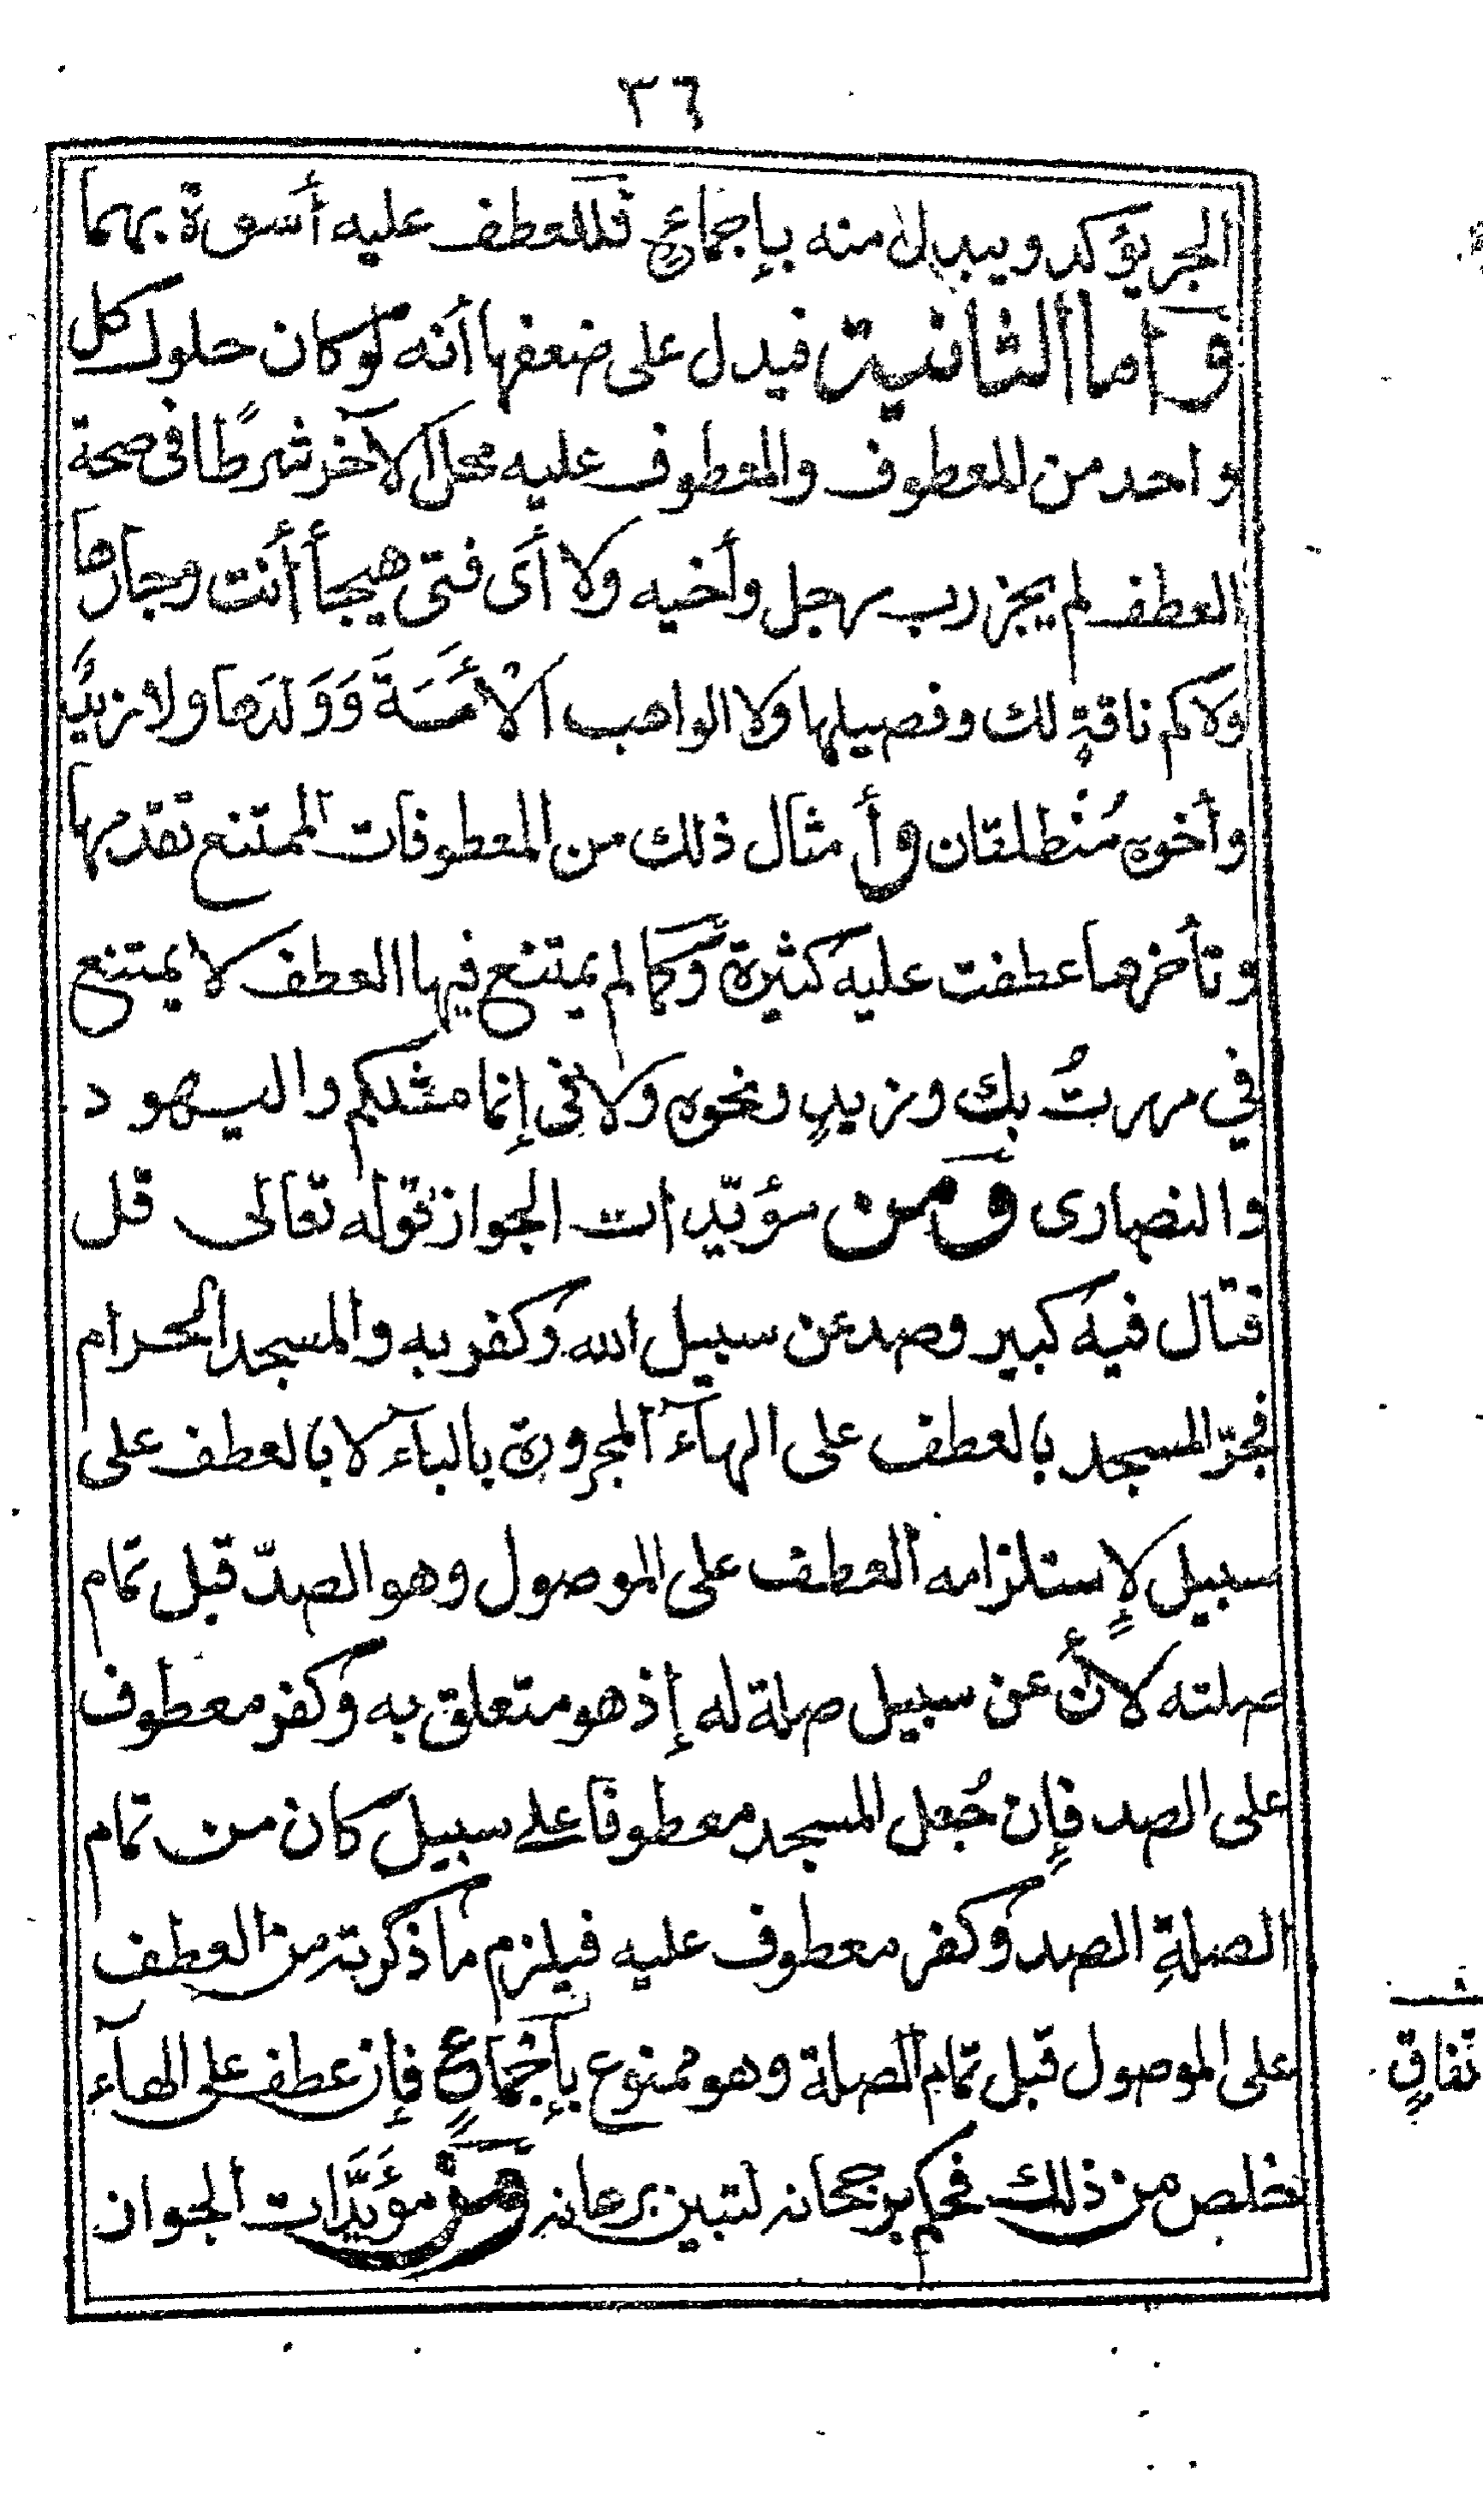 ٣٦
الجر يؤكد ويبدل منه بإجماعٍ فللعطف عليه أسوة بهما
وأما الثانية فيدل على ضعفها أنه لو كان حلول كل
واحد من المعطوف والمعطوف عليه محل الآخر شرطًا في صحة
العطف لم يجز رب رجل وأخيه ولا أى فتى هيجأ أنت وجارها
ولا كم ناقةٍ لك وفصيلها ولا الواهب الأمَةَ وَوَلدَها ولا زيدٌ
وأخوه مُنْطلقان وأمثال ذلك من المعطوفات الممتنع تقدمها
وتأخر ما عطفت عليه كثيرة وكما لم يمتنع فيها العطف لا يمتنع
في مررتُ بك وزيدٍ ونحوه ولا في إنما مثلكم واليهود
والنصارى ومن مؤيّدات الجواز قوله تعالى قل
قتال فيه كبير وصد عن سبيل الله وكفر به والمسجد الحرام
فجرّ المسجد بالعطف على الهآء المجرورة بالبآء لا بالعطف على
سبيل لإستلزامه العطف على الموصول وهو الصدّ قبل تمام
صلته لأن عن سبيل صلة له إذ هو متعلق به وكفر معطوف
على الصد فإن جُعل المسجد معطوفا على سبيل كان من تمام
الصلةِ الصد وكفر معطوف عليه فيلزم ما ذكرته من العطف
على الموصول قبل تمام الصلة وهو ممنوع بإجماعٍ فإن عطف على الهآء
تفاقٍ
خلص من ذلك فحكم برجحانه لتبين برهانه ومن مؤيَّدات الجواز